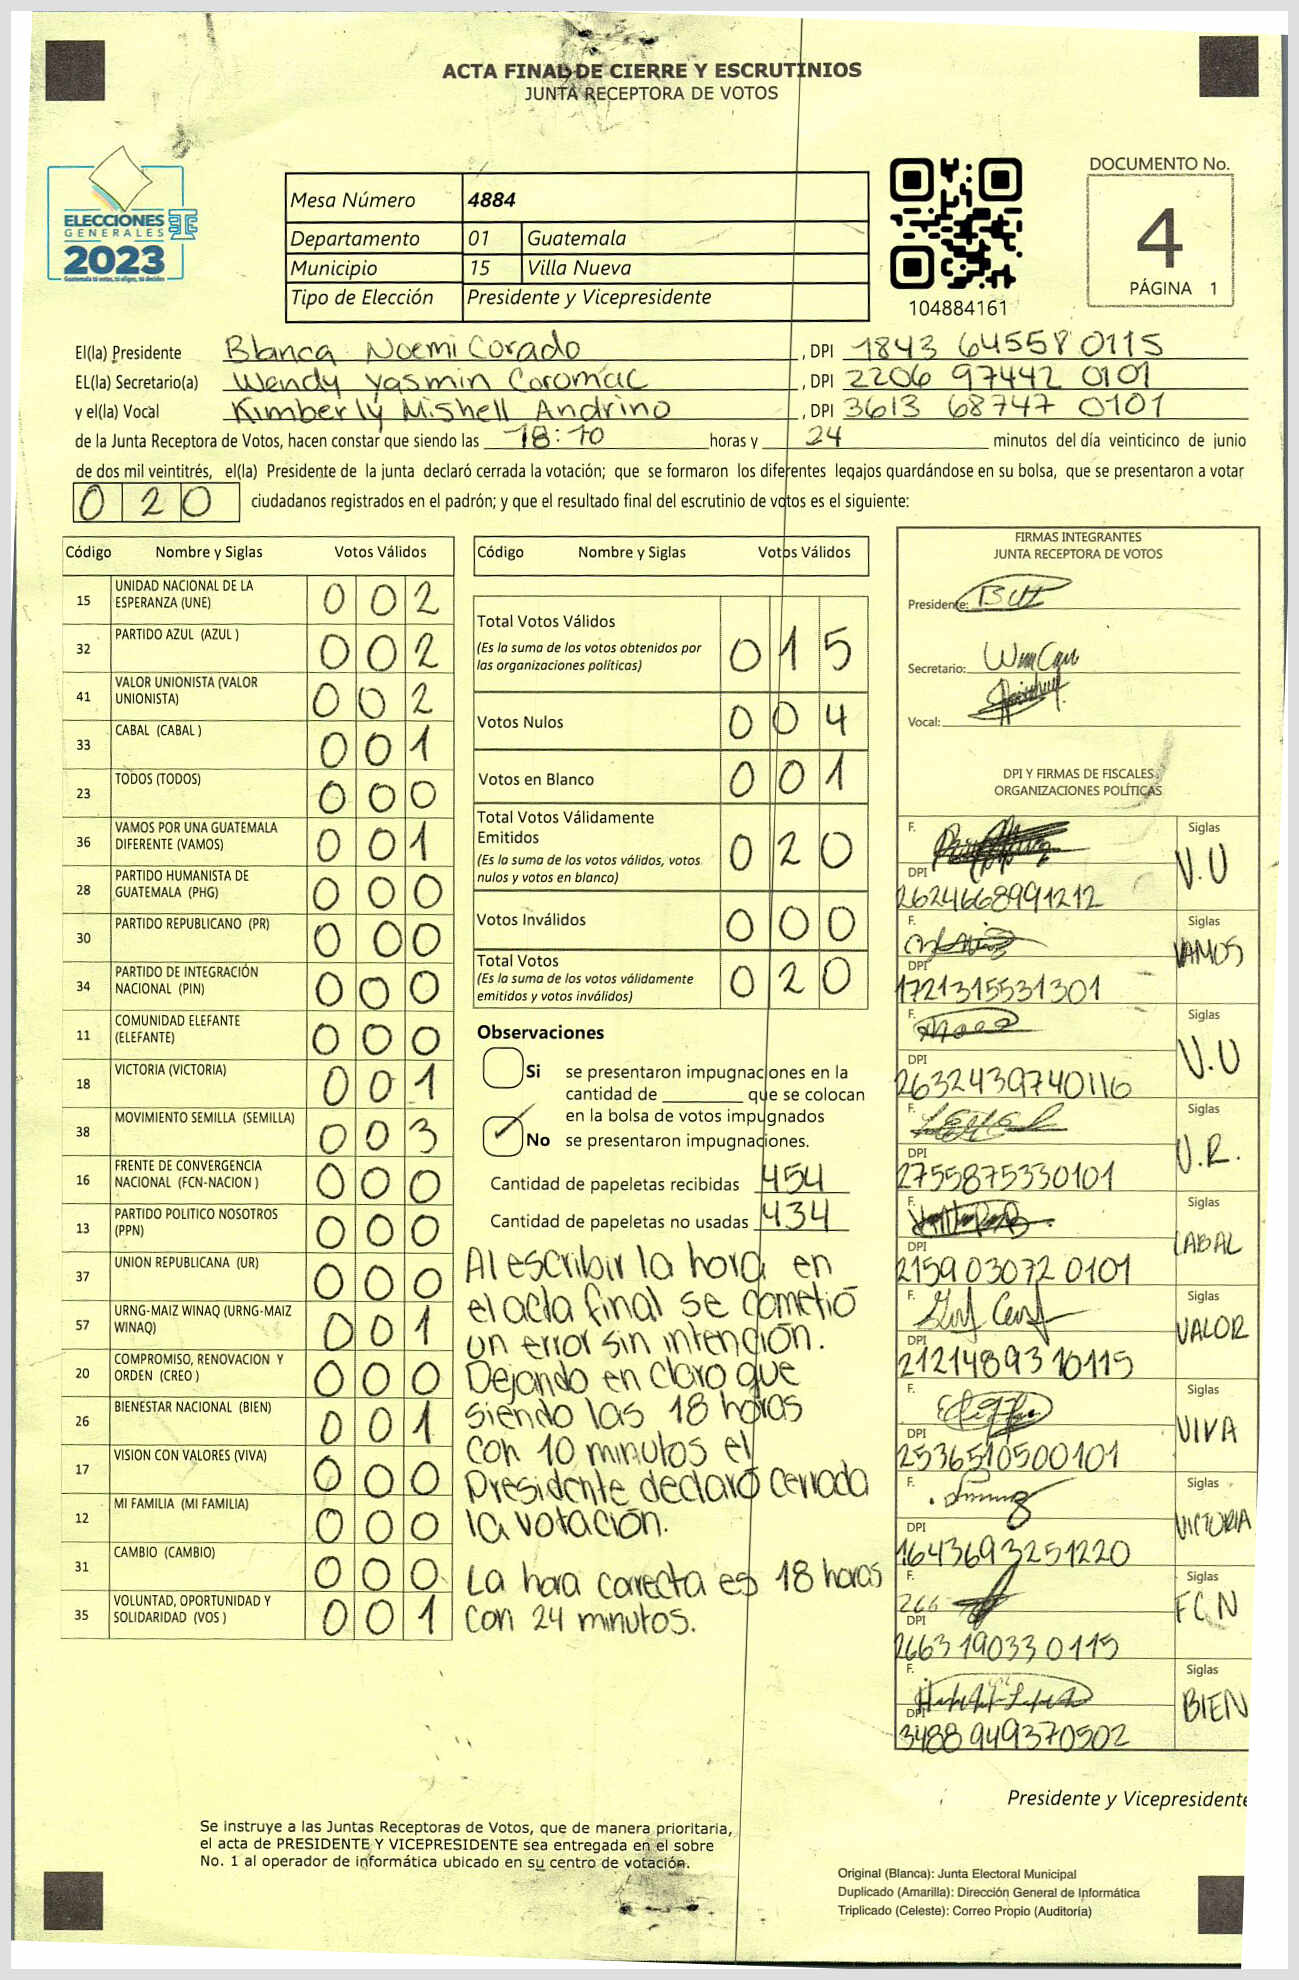 ACTA FINAL DE CIERRE Y ESCRUTINIOS
JUNTA RECEPTORA DE VOTOS
ELECCIONES
GENERALES
2023
Guatemala tú votas, tú eliges, tú decides
Mesa Número 4884
Departamento 01 Guatemala
Municipio 15 Villa Nueva
Tipo de Elección Presidente y Vicepresidente
104884161
DOCUMENTO No.
4
PÁGINA 1
El(la) Presidente Blanca Noemi Corado , DPI 1843 64558 0115
EL(la) Secretario(a) Wendy Yasmin Coromac , DPI 2206 97442 0101
y el(la) Vocal Kimberly Mishell Andrino , DPI 3613 68747 0101
de la Junta Receptora de Votos, hacen constar que siendo las 18:10 horas y 24 minutos del día veinticinco de junio
de dos mil veintitrés, el(la) Presidente de la junta declaró cerrada la votación; que se formaron los diferentes legajos guardándose en su bolsa, que se presentaron a votar
020 ciudadanos registrados en el padrón; y que el resultado final del escrutinio de votos es el siguiente:
Código Nombre y Siglas Votos Válidos
15 UNIDAD NACIONAL DE LA ESPERANZA (UNE) 002
32 PARTIDO AZUL (AZUL ) 002
41 VALOR UNIONISTA (VALOR UNIONISTA) 002
33 CABAL (CABAL ) 001
23 TODOS (TODOS) 000
36 VAMOS POR UNA GUATEMALA DIFERENTE (VAMOS) 001
28 PARTIDO HUMANISTA DE GUATEMALA (PHG) 000
30 PARTIDO REPUBLICANO (PR) 000
34 PARTIDO DE INTEGRACIÓN NACIONAL (PIN) 000
11 COMUNIDAD ELEFANTE (ELEFANTE) 000
18 VICTORIA (VICTORIA) 001
38 MOVIMIENTO SEMILLA (SEMILLA) 003
16 FRENTE DE CONVERGENCIA NACIONAL (FCN-NACION ) 000
13 PARTIDO POLITICO NOSOTROS (PPN) 000
37 UNION REPUBLICANA (UR) 000
57 URNG-MAIZ WINAQ (URNG-MAIZ WINAQ) 001
20 COMPROMISO, RENOVACION Y ORDEN (CREO ) 000
26 BIENESTAR NACIONAL (BIEN) 001
17 VISION CON VALORES (VIVA) 000
12 MI FAMILIA (MI FAMILIA) 000
31 CAMBIO (CAMBIO) 000
35 VOLUNTAD, OPORTUNIDAD Y SOLIDARIDAD (VOS ) 001
Código Nombre y Siglas Votos Válidos
Total Votos Válidos 015
(Es la suma de los votos obtenidos por
las organizaciones políticas)
Votos Nulos 004
Votos en Blanco 001
Total Votos Válidamente
Emitidos 020
(Es la suma de los votos válidos, votos
nulos y votos en blanco)
Votos Inválidos 000
Total Votos 020
(Es la suma de los votos válidamente
emitidos y votos inválidos)
Observaciones
Si se presentaron impugnaciones en la
cantidad de ________ que se colocan
en la bolsa de votos impugnados
No se presentaron impugnaciones.
Cantidad de papeletas recibidas 454
Cantidad de papeletas no usadas 434
Al escribir la hora en
el acta final se cometió
un error sin intención.
Dejando en claro que
siendo las 18 horas
con 10 minutos el
Presidente declaró cerrada
la votación.
La hora correcta es 18 horas
con 24 minutos.
FIRMAS INTEGRANTES
JUNTA RECEPTORA DE VOTOS
Presidente:
Secretario:
Vocal:
DPI Y FIRMAS DE FISCALES
ORGANIZACIONES POLÍTICAS
F. Siglas V.U
DPI 2624668991212
F. Siglas VAMOS
DPI 1721315531301
F. Siglas V.U
DPI 2632439740116
F. Siglas U.R.
DPI 2755875330101
F. Siglas CABAL
DPI 2159 03072 0101
F. Siglas VALOR
DPI 2121489310115
F. Siglas VIVA
DPI 2536510500101
F. Siglas VICTORIA
DPI 1643693251220
F. 266 Siglas FCN
DPI 2663190330115
F. Siglas BIEN
DPI 3488949370502
Presidente y Vicepresidente
Se instruye a las Juntas Receptoras de Votos, que de manera prioritaria,
el acta de PRESIDENTE Y VICEPRESIDENTE sea entregada en el sobre
No. 1 al operador de informática ubicado en su centro de votación.
Original (Blanca): Junta Electoral Municipal
Duplicado (Amarilla): Dirección General de Informática
Triplicado (Celeste): Correo Propio (Auditoría)